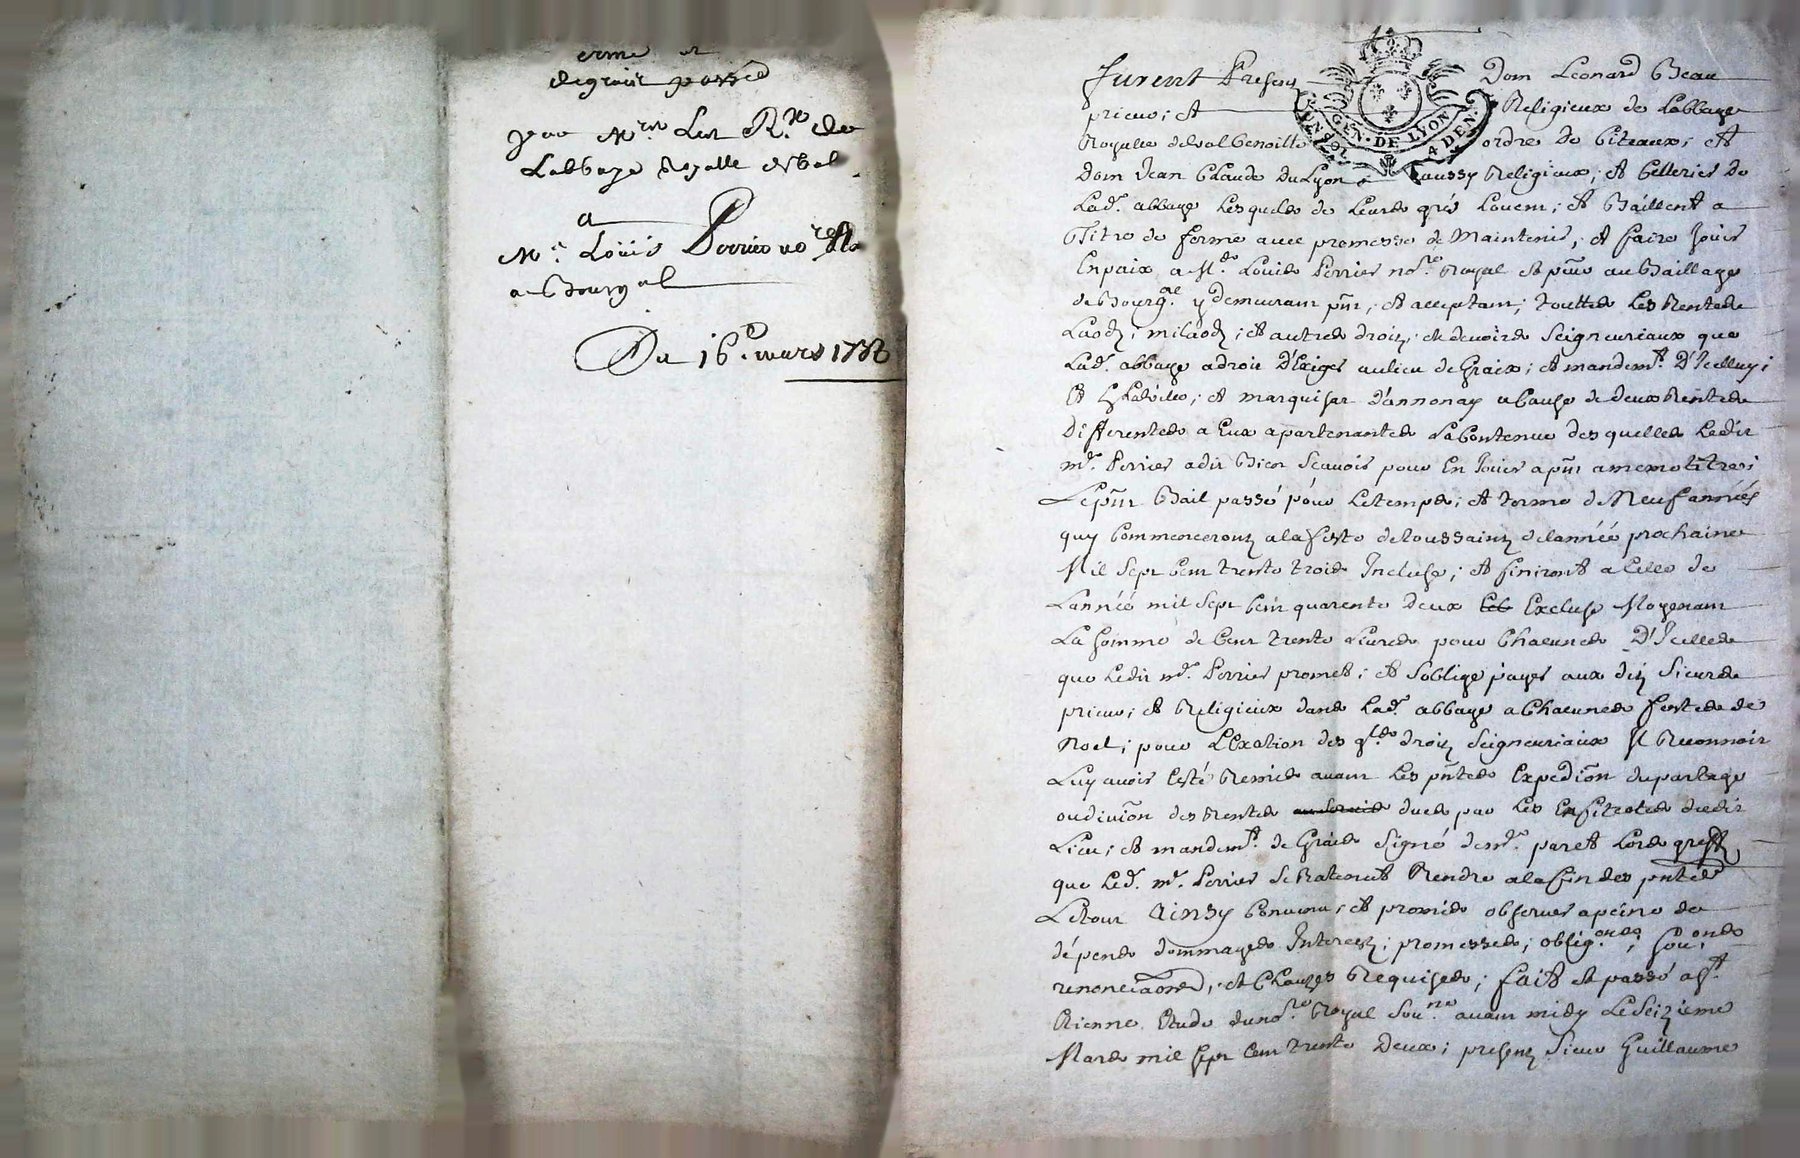 erme et
degraix passé
par Mrs Les R.x de
Labbaye Royalle de Val
a
Mr. Loüis Perrier no.re
a Bourgal
Du 16e. mars 1732
furent Presens Dom Leonard Beau
prieur; et Religieux de Labbaye
Royalle de Valbenoitte ordre de Citeaux; et
Dom Jean Claude DuLyon aussy Religieux, et Cellerier de
Lad. abbaye Lesquels de Leurs grés Louent; et Baillent a
Titre de ferme avec promesse de Maintenir, et faire Joüir
Enpaix a Me. Louis Perrier no.re Royal et pcur au Baillage
de Bourgal y demeurant pnt, et acceptant, touttes Les Rentes
Laods, milaods, et autres droits, et devoirs Seigneuriaux que
Lad. abbaye adroit D'Exiger aulieu de Graix; et mandemt. D'Icelluy;
Et marquisat d'annonay acause de deux Rentes
Differentes a Eux apartenantes La Contenue desquelles Ledit
me. Perrier adit Bien Scavoir pour En Joüir apnt amemetitre;
Lepnt Bail passé pour Letemps; et terme de Neuf années
quy Commenceront alafeste detoussaint delannée prochaine
Mil Sept Cent trente trois Incluse; et finiront acelle de
Lannée mil Sept Cent quarente deux Excluse Moyenant
La somme de Cent trente Livres pour Chacunes D'Icelles
que Ledit me. Perrier promet; et Soblige payer aux dits Sieurs
prieur; et Religieux dans Lad. abbaye a Chacunes festes de
Noel; pour LExation des droits Seigneuriaux Il Reconnoit
Luy avoir Esté Remis avant Les pntes Expedion dupartage
oudivion des Rentes dues par Les Enfiteotes dudit
Lieu; et mandemt. de Graix Signé
que Led. me. Perrier Rendre alafin des pntes
Letout Ainsy Convenu; et promis observer apeine de
dépens dommages Interests; promesses, oblig.ons; sou.ons
renonciaons, et Clauses Requises; fait et passé a St.
Etienne Etude dunore. Royal Sou.ne avant midy Le Seizieme
Mars mil sept Cent trente Deux; presents Sieur Guillaume
GEN. DE LYON
4 DEN.